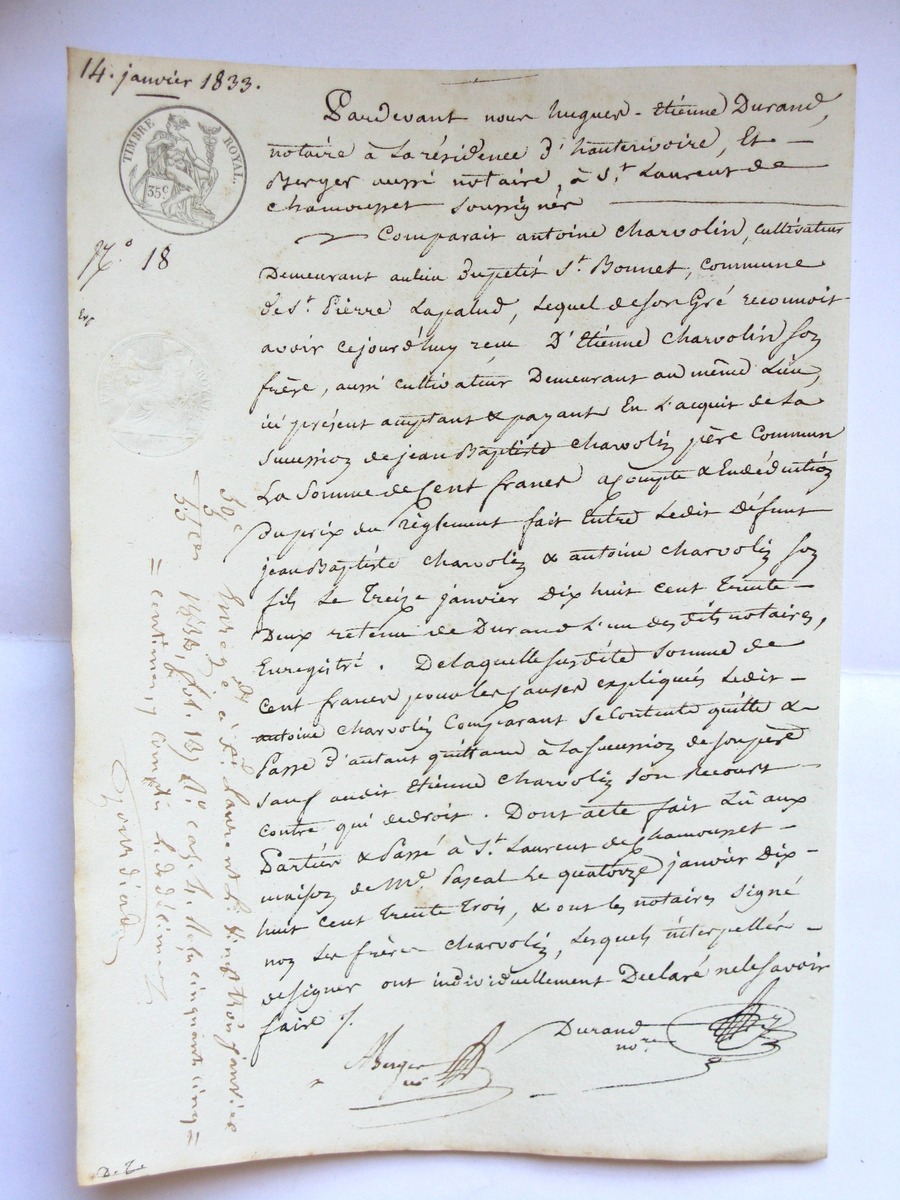 14. janvier 1833.
TIMBRE ROYAL
35 c
N.o 18
Pardevant nous hugues-Etiénne Durand,
notaire à La résidence d'hauterivoire, Et
Berger aussi notaire, à S.t Laurent de
Chamousset Soussignés
Comparait antoine Charvolin, cultivateur
Demeurant aulieu Dupetit S.t Bonnet, commune
de S.t Pierre Lapalud, Lequel deson Gré reconnoit
avoir cejourd'huy reçu D'Etienne Charvolin son
frère, aussi cultivateur Demeurant au même Lieu,
ici présent acceptant & payant En L'acquit de La
Succession de jean Baptiste Charvolin père Commun
La Somme de Cent francs acompte & Endéduction
Duprix du règlement fait Entre Ledit Défunt
jean Baptiste Charvolin & antoine Charvolin son
fils Le Treize janvier Dix huit cent Trente
Deux retenu de Durand L'un desdits notaires,
Enregistré. Delaquelle Susdite Somme de
Cent francs pour les causes expliquées Ledit
antoine Charvolin Comparant Secontente quitte &
Passe d'autant quittance à La Succession de sonpère
Sauf audit Etienne Charvolin son recours
contre qui dedroit. Dont acte fait Lu aux
Parties & Passé à S.t Laurent de Chamousset
maison de M.e Pascal Le quatorze janvier Dix
huit Cent Trente Trois, & ont les notaires Signé
non Les frères Charvolin, Lesquels interpellés
designer ont individuellement Déclaré nelesavoir
faire
Durand
no.re
Berger
50 c
5
55 c
Enreg.é à S.t Laurent Le vingt trois janvier
1833, fol. 13 R.o cas. 4. Reçu cinquante cinq
centimes, compris Le décime